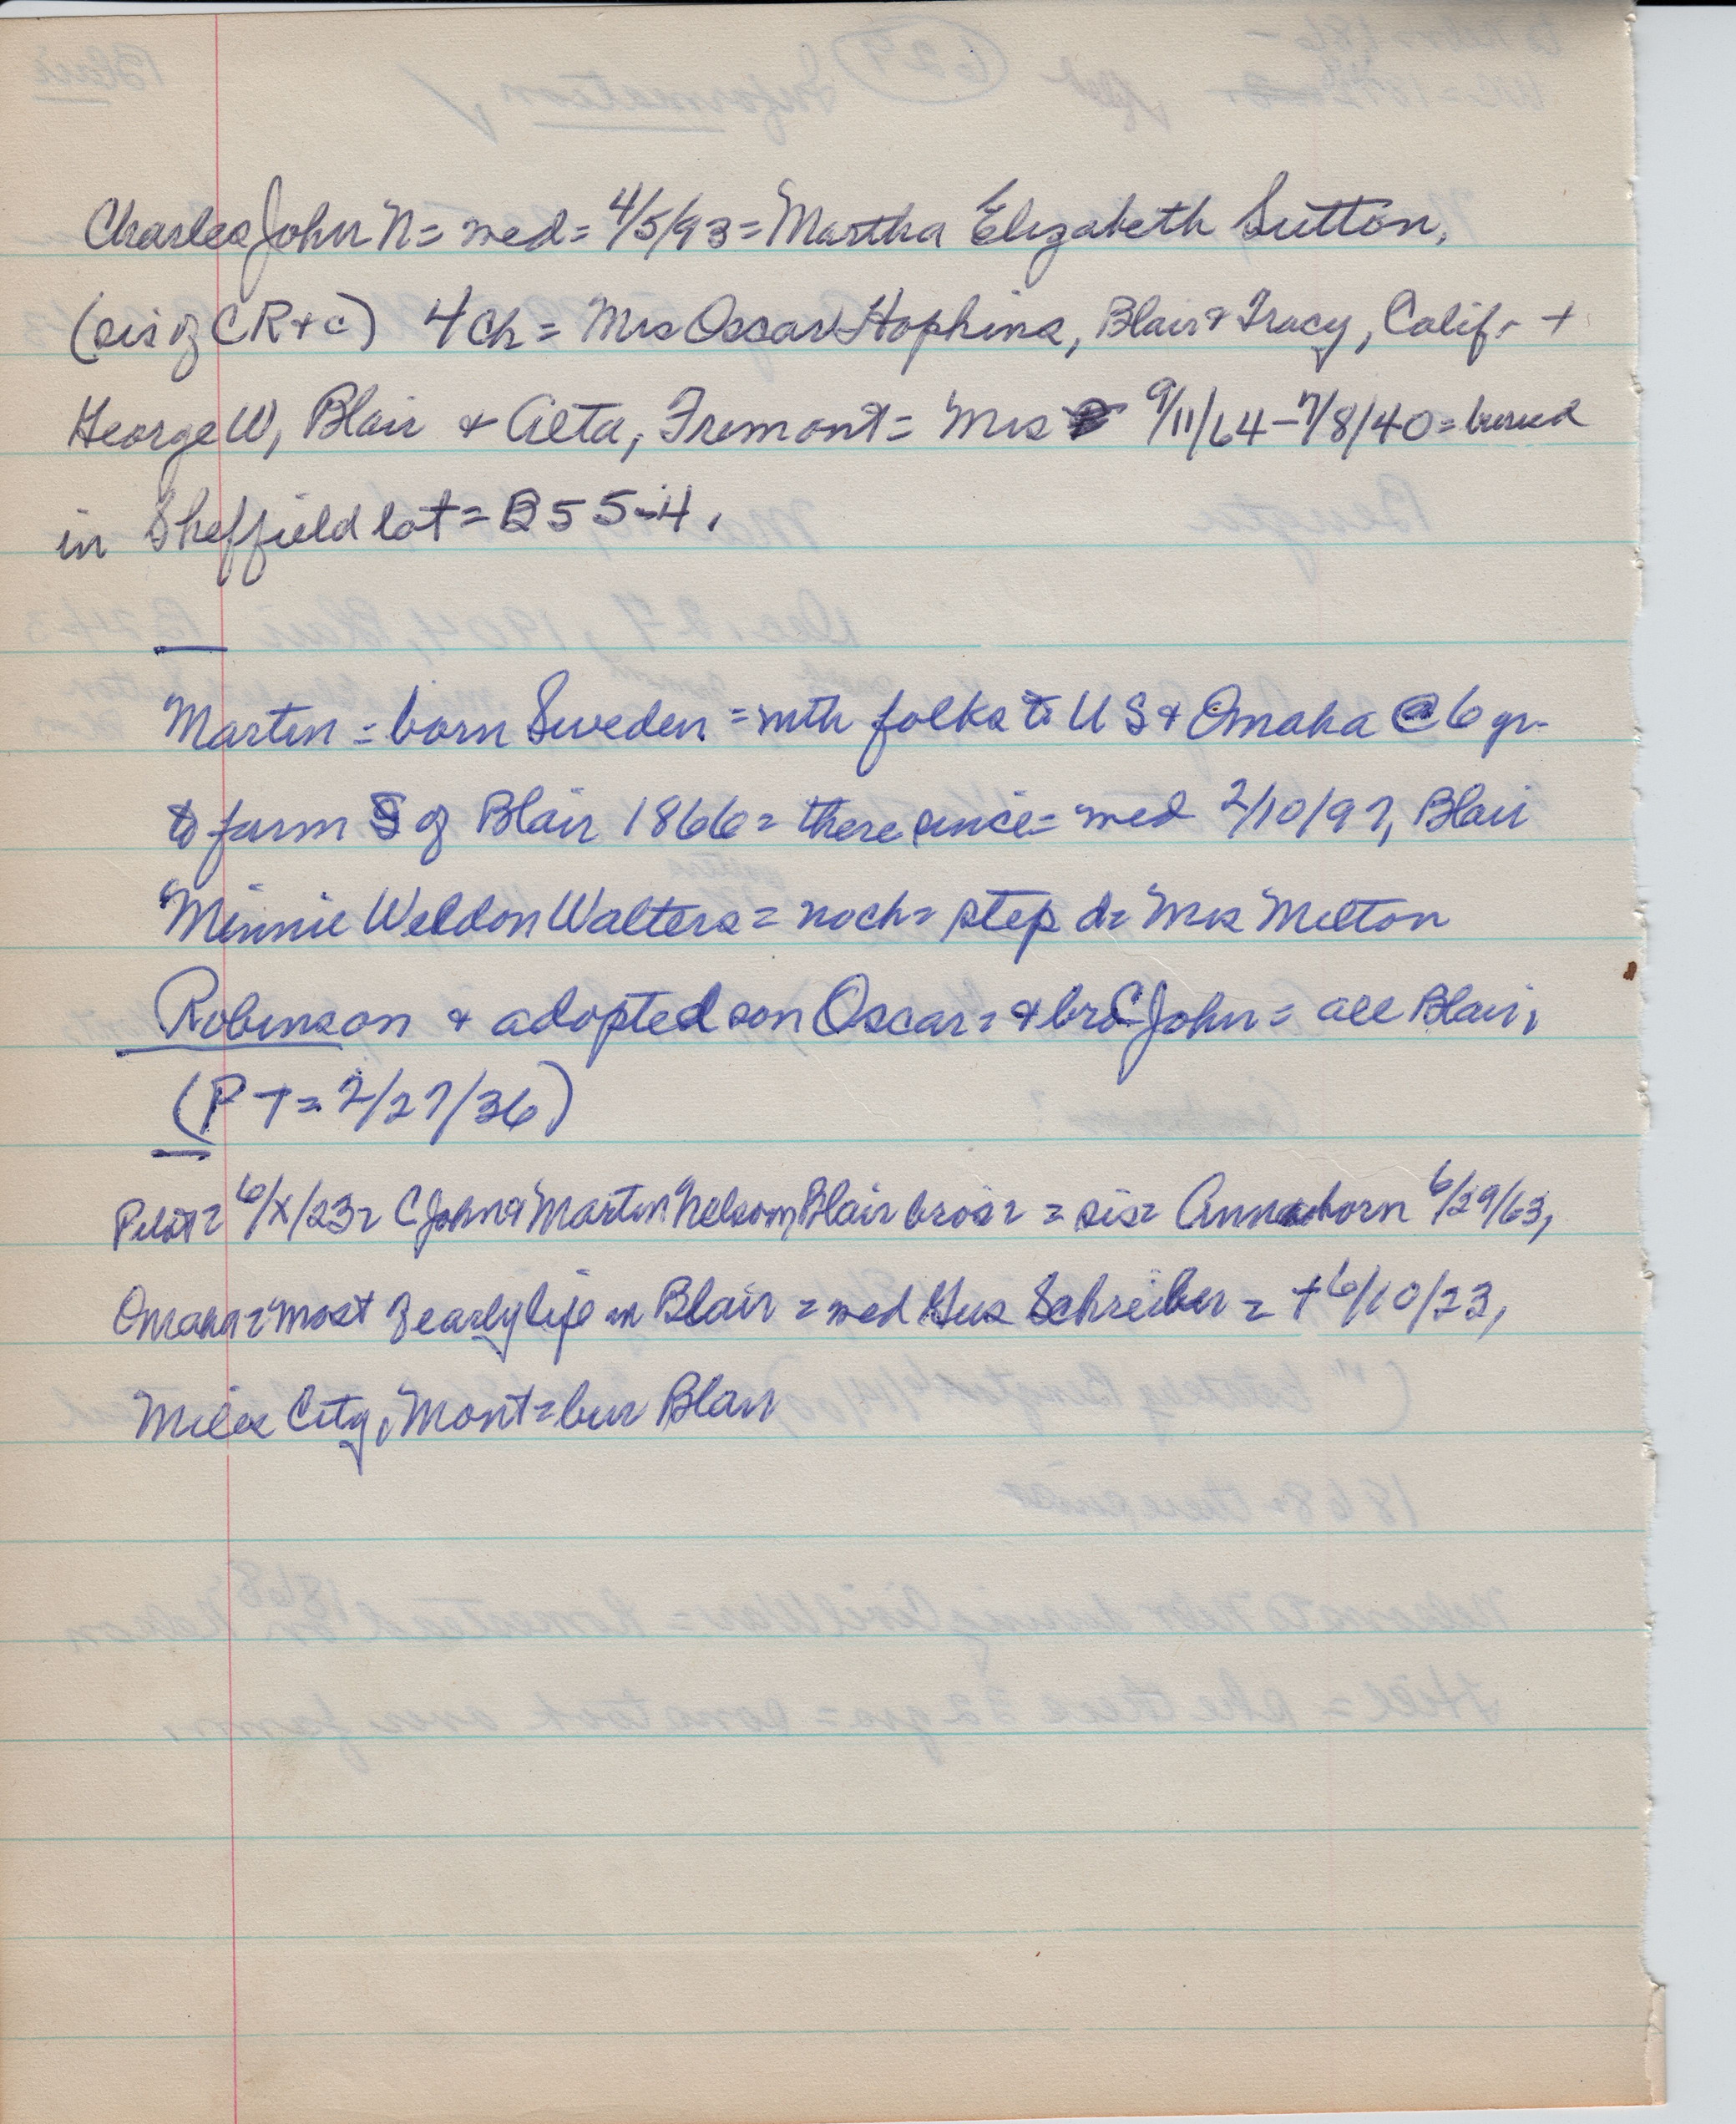 Charles John N = wed = 4/5/93 = Martha Elizabeth Sutton,
(sis of CR + c) 4 ch = Mrs Oscar Hopkins, Blair & Tracy, Calif. +
George W, Blair & Alta, Fremont = Mrs 9/11/64 - 7/8/40 = buried
in Sheffield lot = B55-4.
Martin = born Sweden = with folks to US & Omaha @ 6 yr -
to farm S of Blair 1866 = there since = wed 2/10/97, Blair
Minnie Weldon Walters = no ch = step d = Mrs Milton
Robinson & adopted son Oscar = & bro C John = all Blair,
(PT = 2/27/36)
Pilot = 6/X/23 = C John & Martin Nelson, Blair bros = = sis = Anna born 6/29/63,
Omaha = most of early life in Blair = wed Gus Schreiber = + 6/10/23,
Miles City, Mont = bur Blair